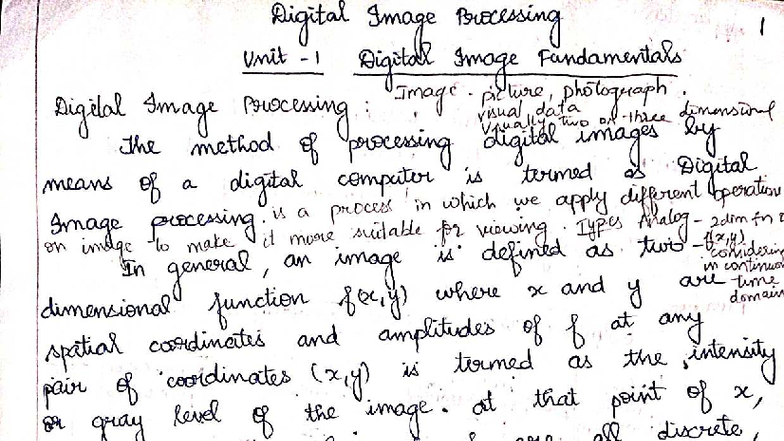 Digital Image Processing
1
Unit - 1 Digital Image Fundamentals
Image - picture, photograph.
visual data
usually two or three dimensional
Digital Image Processing :
The method of processing digital images by
means of a digital computer is termed as Digital
Image processing. is a process in which we apply different operation
on image to make it more suitable for viewing. Types Analog - 2dim fn
f(x,y)
considering
in continuous
time
domain
In general, an image is defined as two -
dimensional function f(x,y) where x and y are
spatial coordinates and amplitudes of f at any
pair of coordinates (x,y) is termed as the intensity
or gray level of the image. at that point of x,
are all discrete,